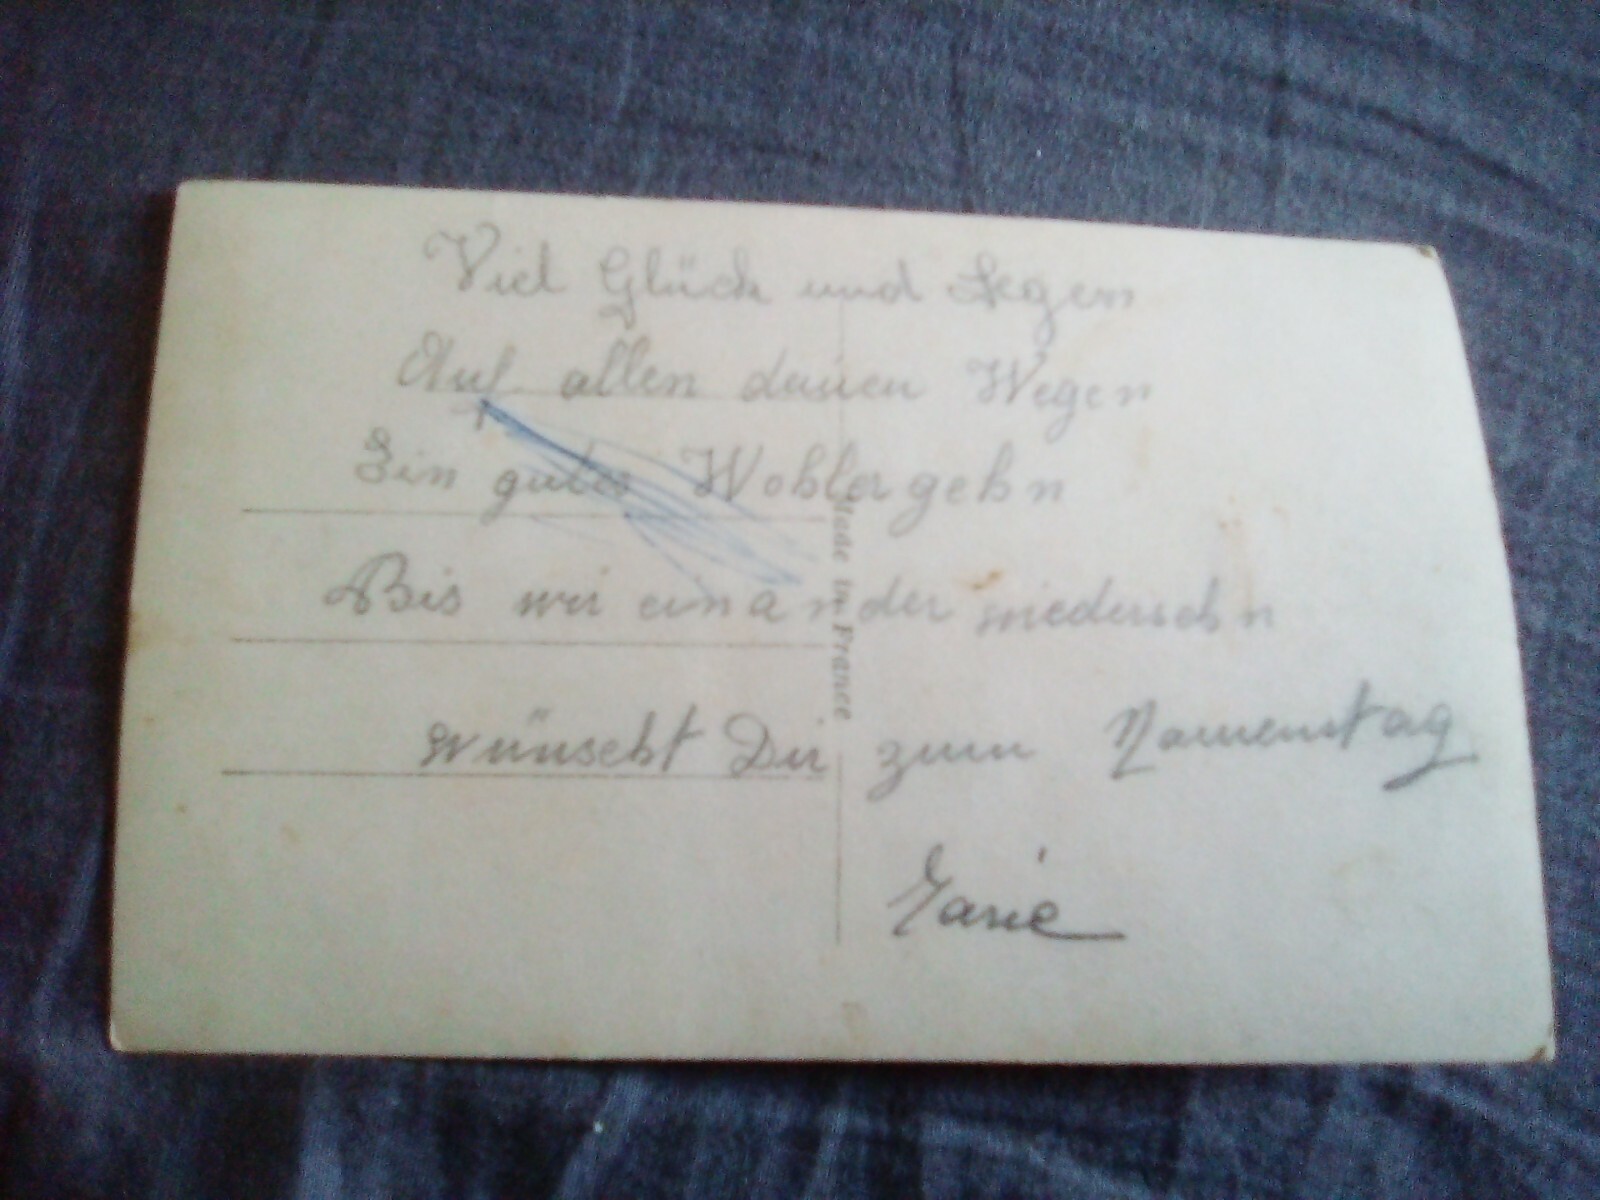 Viel Glück und Segen
Auf allen deinen Wegen
Ein gutes Wohlergehn
Bis wir einander wiedersehn
wünscht Dir zum Namenstag
Marie
Made in France